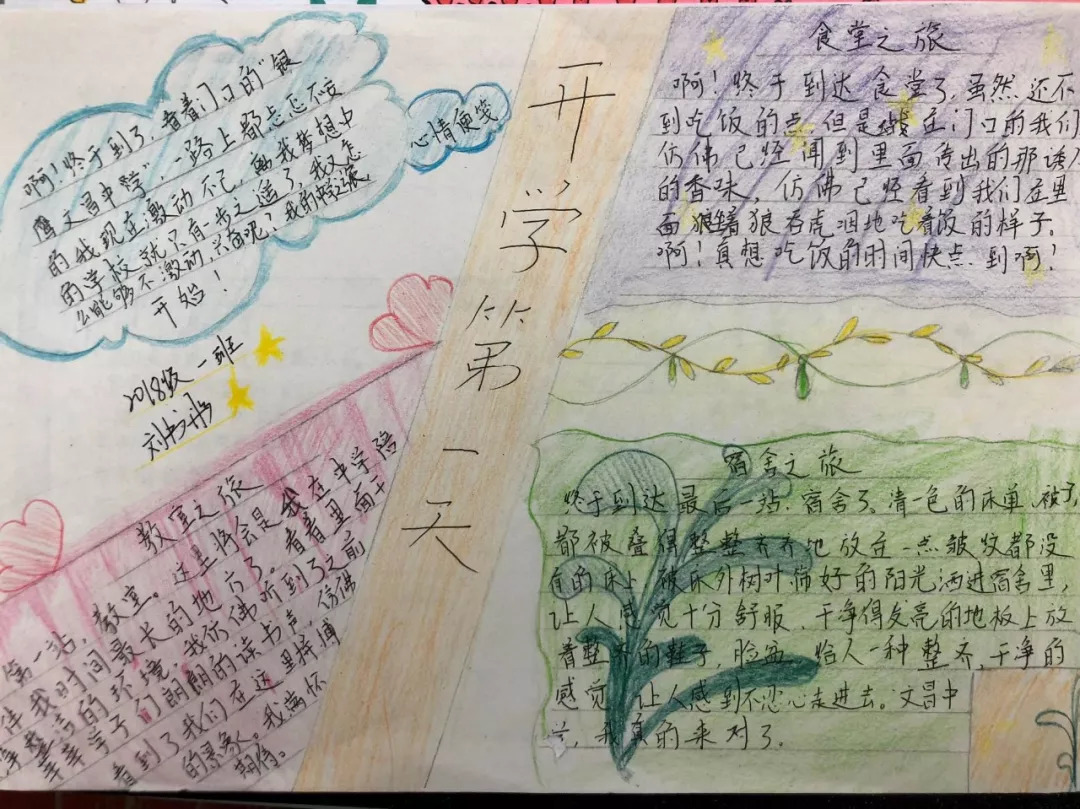 开学第一天
心情便笺
啊！终于到了，看着门口的“银
鹰文昌中学”，一路上都忐忑不安
的我现在激动不已，离我梦想中
的学校就只有一步之遥了，我又怎
么能够不激动，兴奋呢？我的中学之旅
开始！
2018级 一班
刘书彤
教室之旅
第一站，教室。这里将会是我在中学陪
伴我时间最长的地方了。看着里面干
净整洁的环境，我仿佛听到了之前
莘莘学子们朗朗的读书声，仿佛
看到了我们在这里拼搏
的景象。我满怀
期待。
食堂之旅
啊！终于到达食堂了，虽然还不
到吃饭的点，但是站在门口的我们
仿佛已经闻到里面传出的那诱人
的香味，仿佛已经看到我们在里
面狼吞虎咽地吃着饭的样子。
啊！真想吃饭的时间快点到啊！
宿舍之旅
终于到达最后一站，宿舍了。清一色的床单、被子，
都被叠得整整齐齐地放在一点皱纹都没
有的床上，被床外树叶筛好的阳光洒进宿舍里，
让人感觉十分舒服，干净得发亮的地板上放
着整齐的鞋子，脸盆，给人一种整齐，干净的
感觉，让人感到不忍心走进去。文昌中
学，我真的来对了。